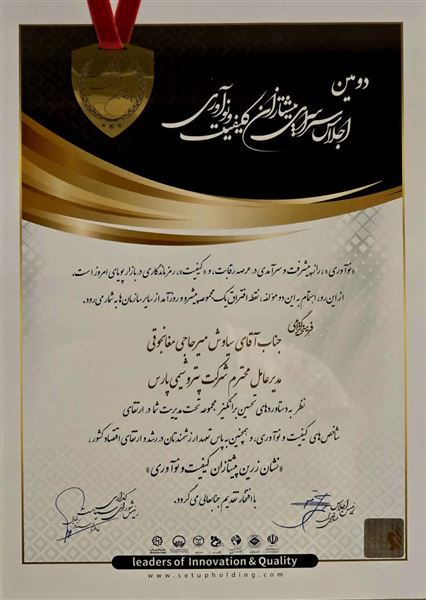 دومین
اجلاس سراسری پیشتازان کیفیت و نوآوری
«نوآوری»، راز پیشرفت و سرآمدی در عرصه رقابت، و «کیفیت»، رمز ماندگاری در بازار پویای امروز است.
از این رو، اهتمام به این دو مؤلفه، نقطه افتراق یک مجموعه پیشرو و روزآمد از سایر سازمان‌ها به شمار می‌رود.
جناب آقای سیاوش میرحاجی مغانجوقی
مدیرعامل محترم شرکت پتروشیمی پارس
نظر به دستاوردهای تحسین برانگیز مجموعه تحت مدیریت شما در ارتقای
شاخص‌های کیفیت و نوآوری، و همچنین به پاس تعهد ارزشمندتان در رشد و ارتقای اقتصاد کشور،
«نشان زرین پیشتازان کیفیت و نوآوری»
با افتخار تقدیم جنابعالی می‌گردد.
leaders of Innovation & Quality
www.setupholding.com